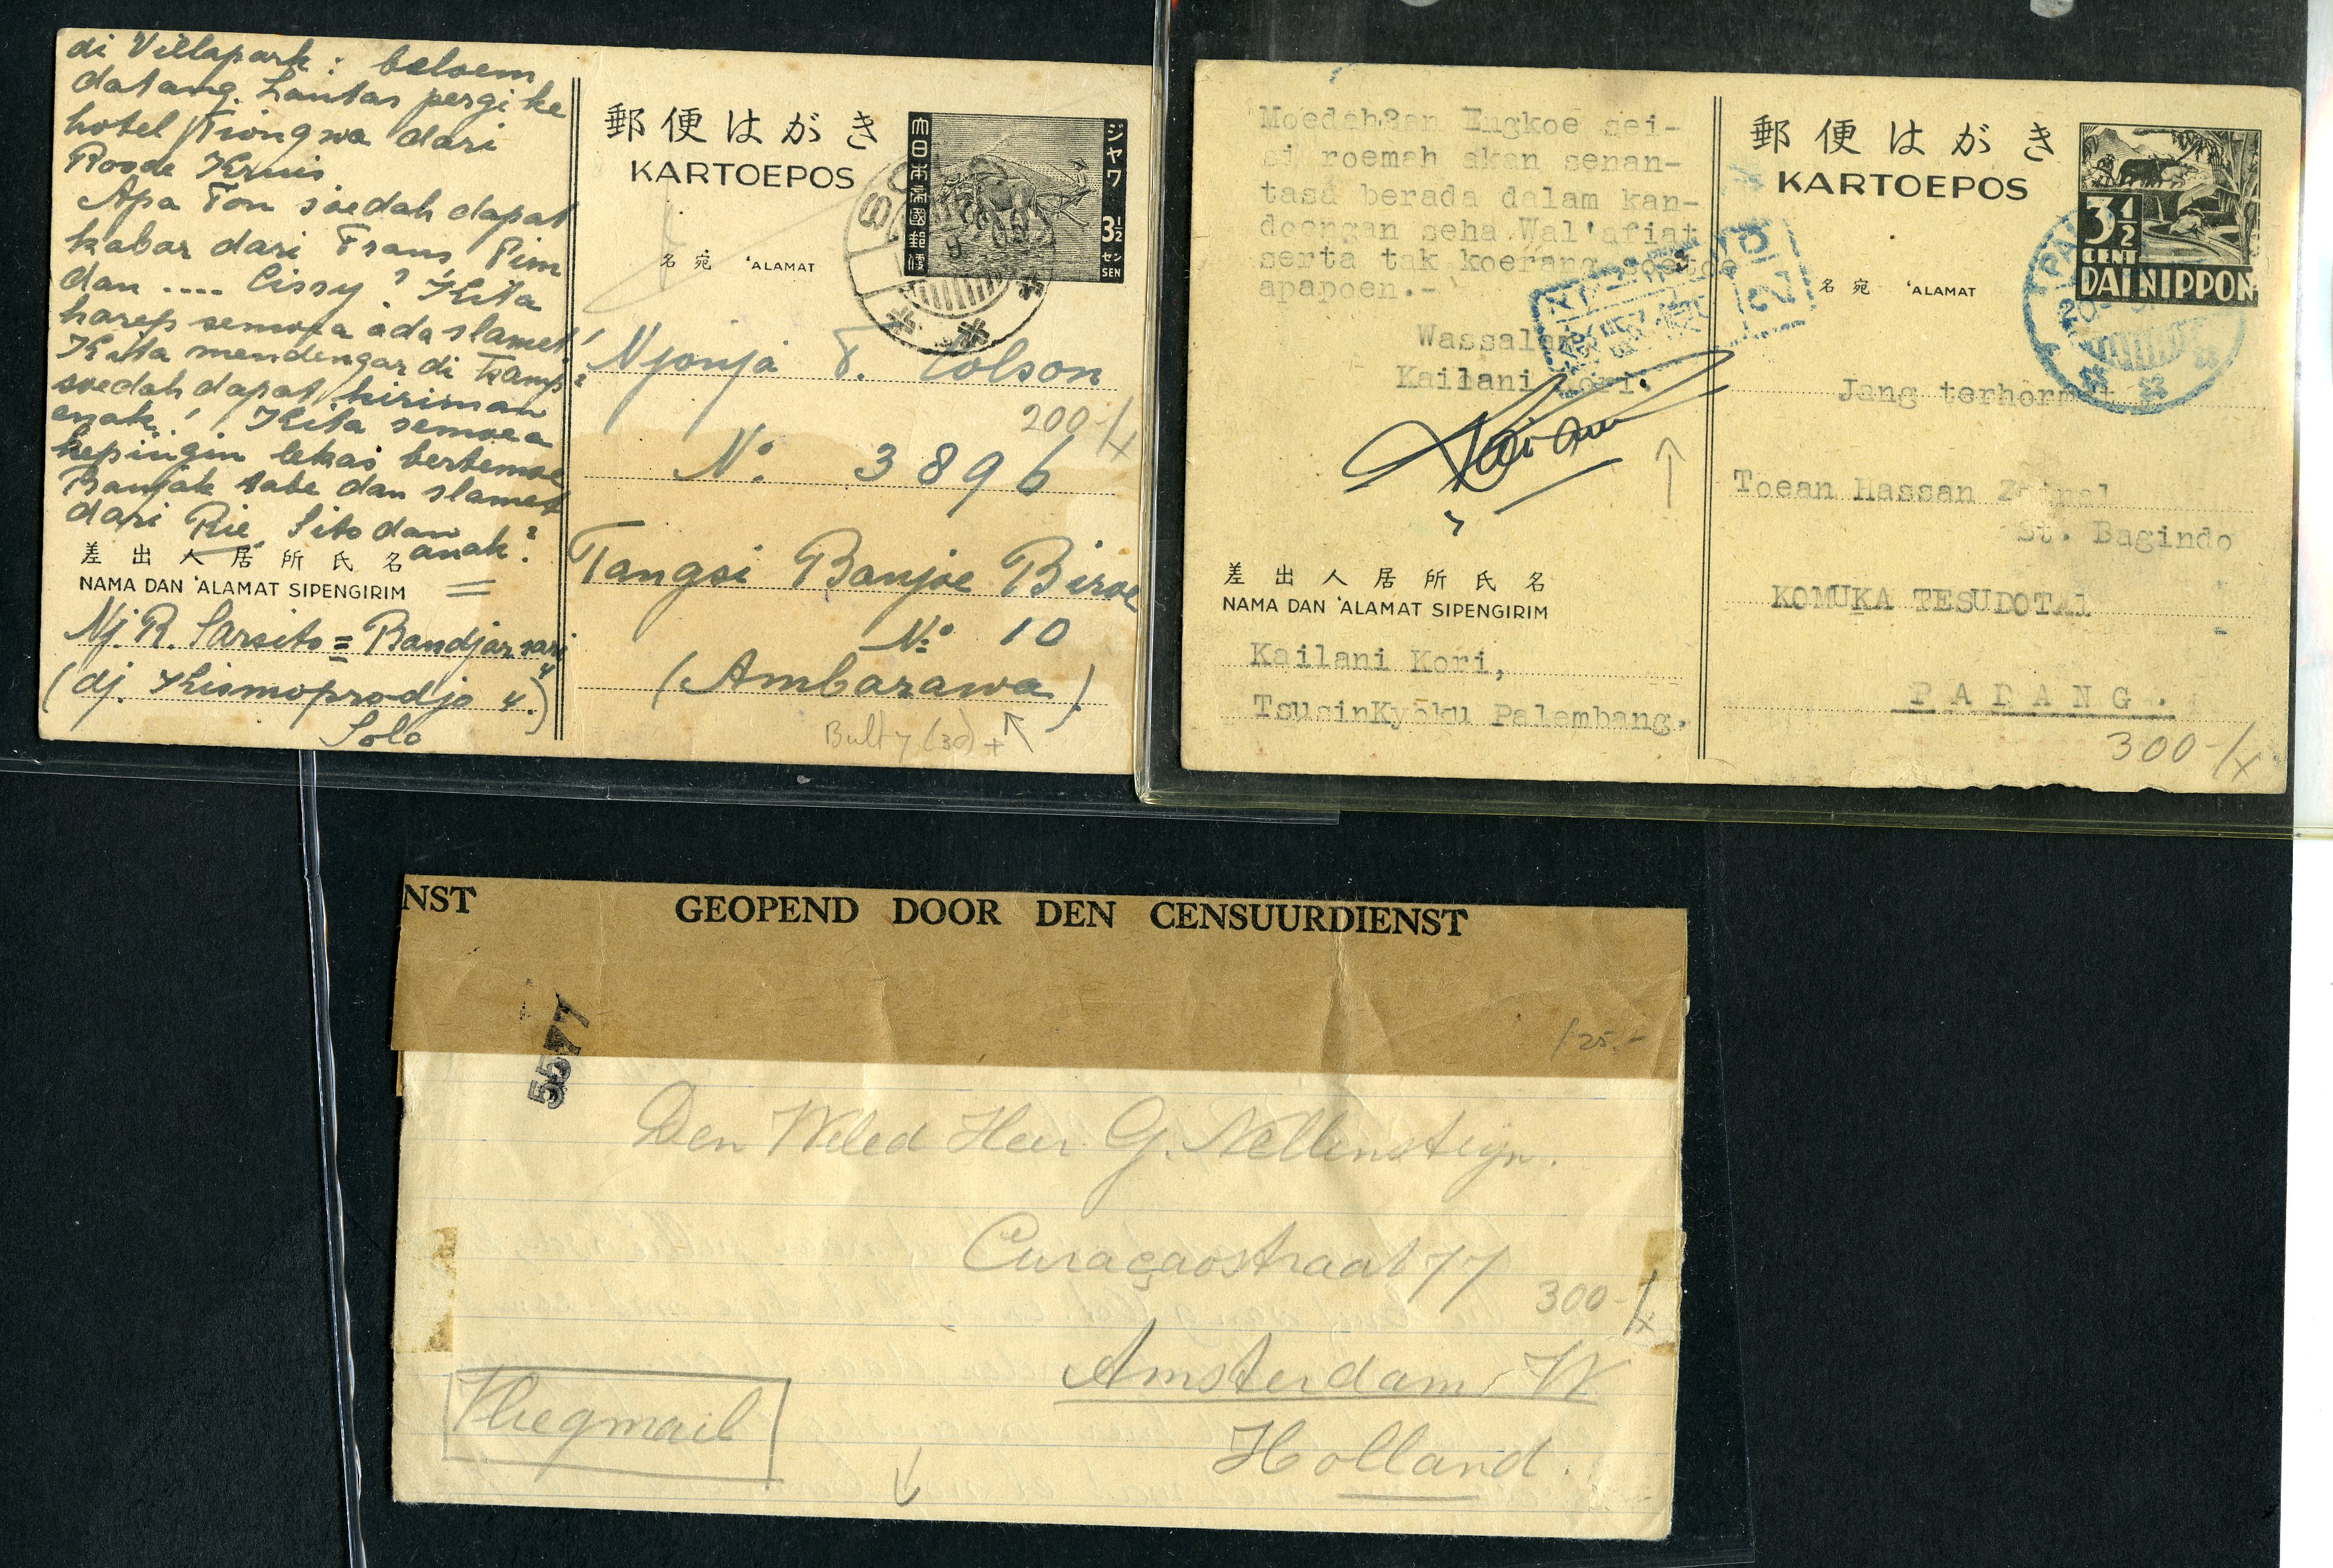 di Villapark : beloem
datang. Lantas pergi ke
hotel Tiongwa dari
Roode Kruis
Apa Ton soedah dapat
kabar dari Frans, Pim
dan .... Cissy? Kita
harep semoea ada slamet!
Kita mendengar di kamp2
soedah dapat kiriman
enak! Kita semoea
kepiingin lekas bertemoe
Banjak tabe dan slamet
dari Rie, Sito dan
anak2.
差出人居所氏名
NAMA DAN 'ALAMAT SIPENGIRIM
Nj. R. Sarsito = Bandjarsari
(dj. Kismoprodjo 4.)
Solo
郵便はがき
KARTOEPOS
大日本帝國郵便
ジャワ
3½
セン
SEN
名宛 'ALAMAT
Njonja T. Tolson
200-/x
No. 3896
Tangsi Banjoe Biroe
No. 10
(Ambarawa)
Moedah2an Engkoe sei-
si roemah akan senan-
tasa berada dalam kan-
doengan seha Wal'afiat
serta tak koerang soeatoe
apapoen.-
Wassalam
Kailani Kori.
差出人居所氏名
NAMA DAN 'ALAMAT SIPENGIRIM
Kailani Kori,
TsusinKyōku Palembang.
郵便はがき
KARTOEPOS
3½
CENT
DAI NIPPON
名宛 'ALAMAT
Jang terhormat
Toean Hassan Zainal
St. Bagindo
KOMUKA TESUDOTAI
PADANG.
300-/x
NST GEOPEND DOOR DEN CENSUURDIENST
5577
/25.-
Den Weled Heer G. Nellensteyn.
Curaçaostraat 77
300-/x
Amsterdam W
Vliegmail
Holland.